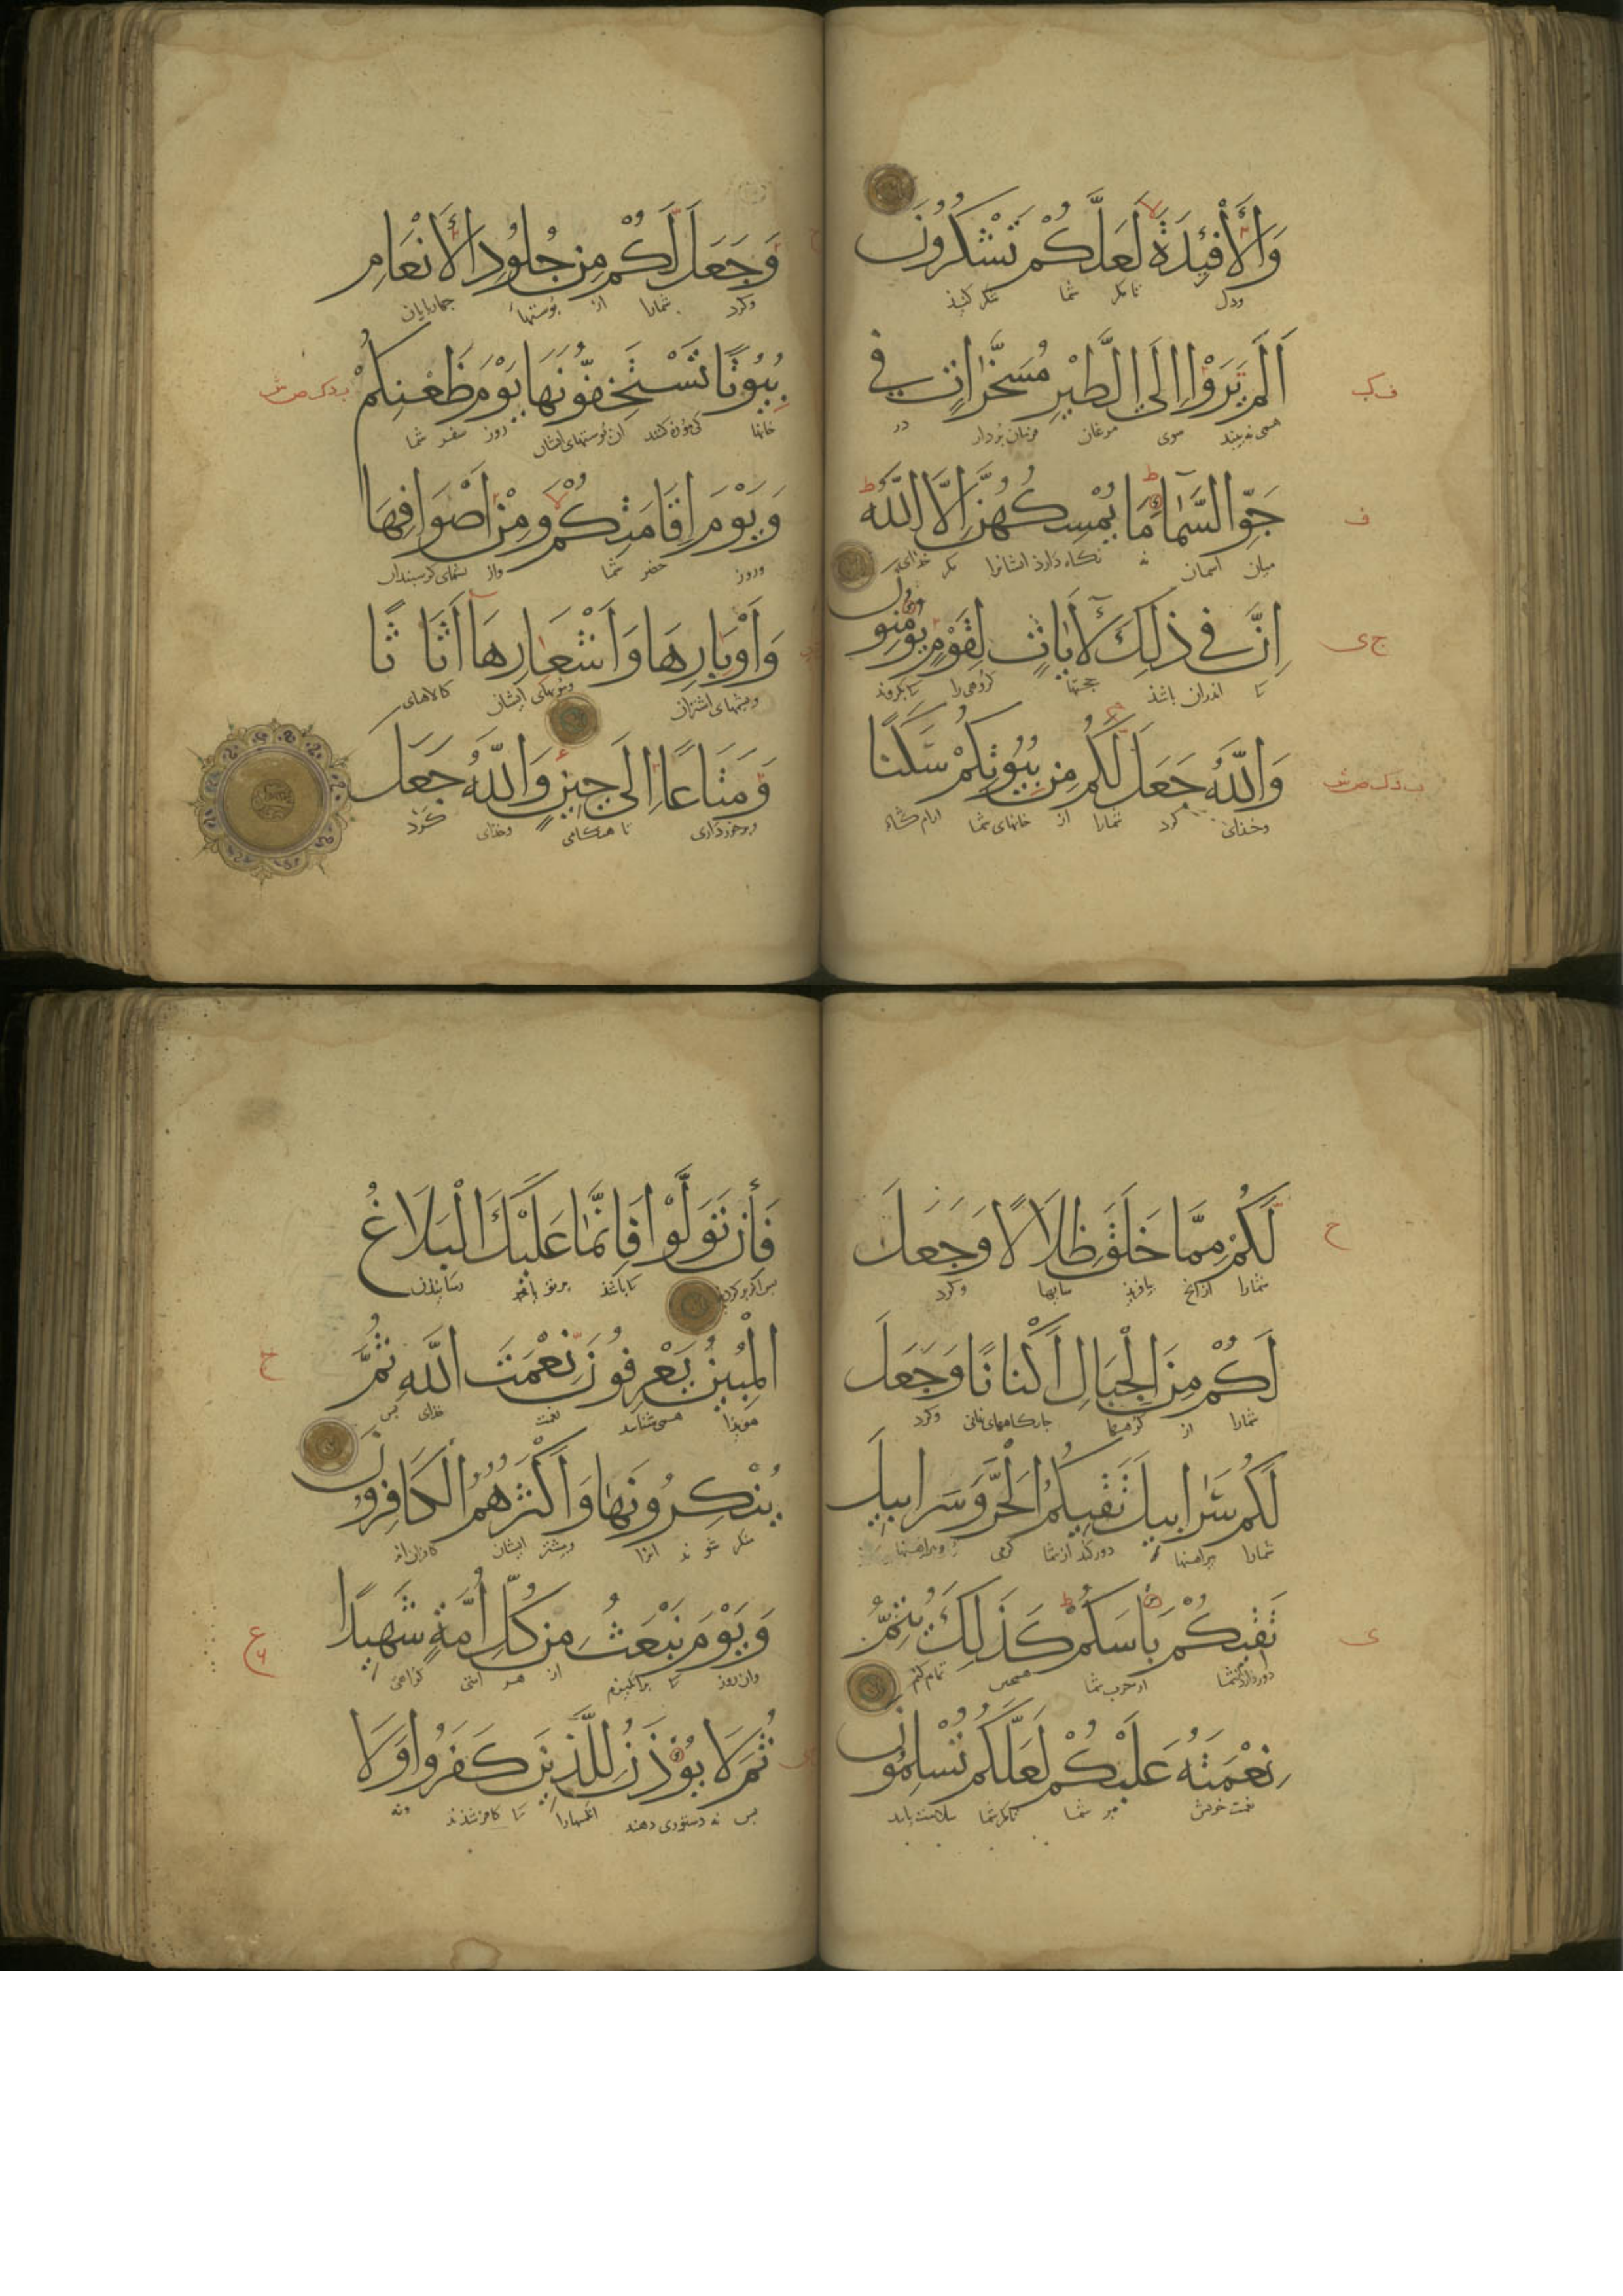 وَالْأَفْئِدَةَ لَعَلَّكُمْ تَشْكُرُونَ
ودل تا مكر شما شكر كنيد
اَلَمْ يَرَوْا اِلَى الطَّيْرِ مُسَخَّرَاتٍ فِي
همى نه بينند سوى مرغان فرمان بردار در
جَوِّ السَّمَاءِ مَا يُمْسِكُهُنَّ اِلَّا اللَّهُ
ميان آسمان نه نكاه دارد ايشانرا مكر خداى
اِنَّ فِي ذٰلِكَ لَآيَاتٍ لِقَوْمٍ يُؤْمِنُونَ
تا اندران باشد حجتها كروهى را تا بكروند
وَاللَّهُ جَعَلَ لَكُمْ مِنْ بُيُوتِكُمْ سَكَنًا
وخداى كرد شمارا از خانهاى شما ارام كاه
وَجَعَلَ لَكُمْ مِنْ جُلُودِ الْأَنْعَامِ
وكرد شمارا از پوستهاء چهارپايان
بُيُوتًا تَسْتَخِفُّونَهَا يَوْمَ ظَعْنِكُمْ
خانها روز سفر شما
وَيَوْمَ اِقَامَتِكُمْ وَمِنْ اَصْوَافِهَا
وروز حضر شما واز پشمهاى كوسپندان
وَاَوْبَارِهَا وَاَشْعَارِهَا اَثَاثًا
وپشمهاى اشتران ومويهاى ايشان كالاهاى
وَمَتَاعًا اِلَى حِينٍ وَاللَّهُ جَعَلَ
وبرخوردارى تا هنكامى وخداى كرد
لَكُمْ مِمَّا خَلَقَ ظِلَالًا وَجَعَلَ
شمارا ازانچ بيافريد سايها وكرد
لَكُمْ مِنَ الْجِبَالِ اَكْنَانًا وَجَعَلَ
شمارا از كوهها وكرد
لَكُمْ سَرَابِيلَ تَقِيكُمُ الْحَرَّ وَسَرَابِيلَ
شمارا پيراهنها دور كند از شما كرمى وپيراهنها
تَقِيكُمْ بَأْسَكُمْ كَذَلِكَ يُتِمُّ
از حرب شما همچنين تمام كند
نِعْمَتَهُ عَلَيْكُمْ لَعَلَّكُمْ تُسْلِمُونَ
نعمت خويش بر شما تا مكر شما سلامت يابيد
فَاِنْ تَوَلَّوْا فَاِنَّمَا عَلَيْكَ الْبَلَاغُ
پس اكر بركردند تا باشد بر تو رسانيدن
الْمُبِينُ يَعْرِفُونَ نِعْمَتَ اللَّهِ ثُمَّ
هويدا همى شناسند نعمت خداى پس
يُنْكِرُونَهَا وَاَكْثَرُهُمُ الْكَافِرُونَ
منكر شوند انرا وبيشتر ايشان كافران اند
وَيَوْمَ نَبْعَثُ مِنْ كُلِّ اُمَّةٍ شَهِيدًا
وان روز تا برانكيزيم از هر امتى كواهى
ثُمَّ لَا يُؤْذَنُ لِلَّذِينَ كَفَرُوا وَلَا
پس نه دستورى دهند انكسهارا تا كافر شدند ونه